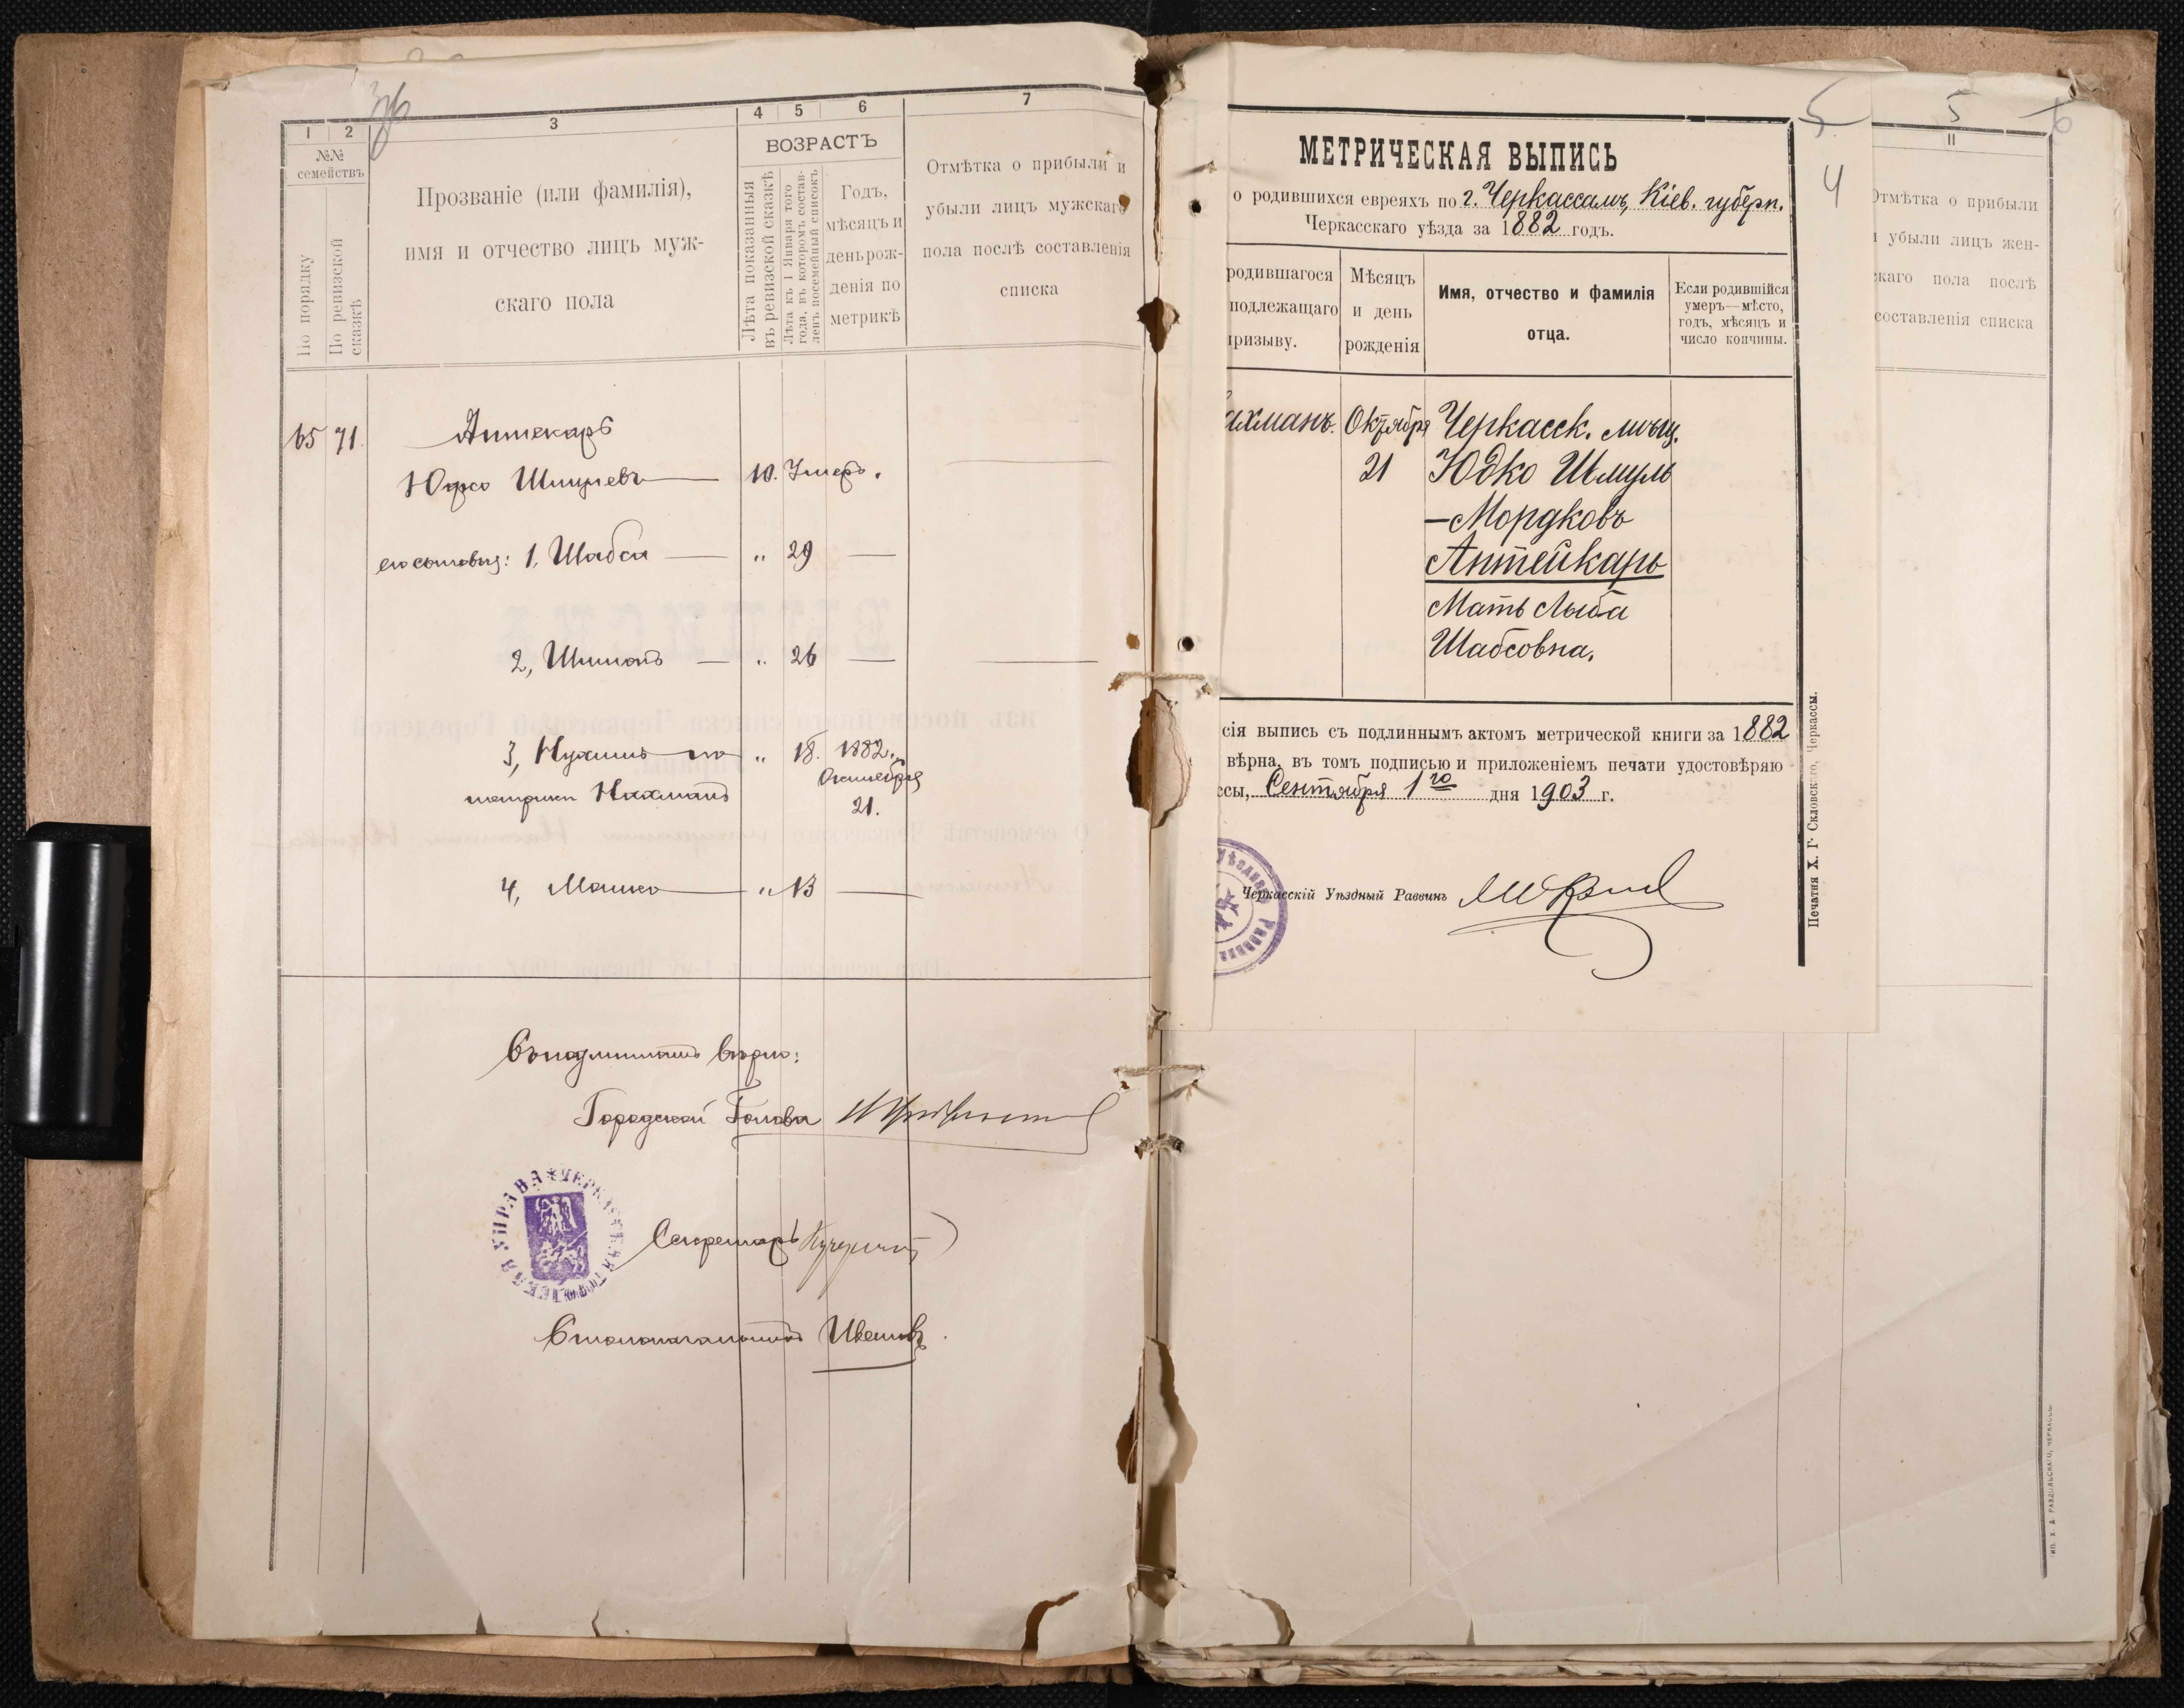 36
1 2 3 4 5 6 7
№№
семействъ
По порядку
По ревизской сказкѣ
Прозваніе (или фамилія),
имя и отчество лицъ муж-
скаго пола
ВОЗРАСТЪ
Лѣта показанныя
въ ревизской сказкѣ
Лѣта къ 1 Января того
года, въ которомъ состав-
ленъ посемейный списокъ
Годъ,
мѣсяцъ и
день рож-
денія по
метрикѣ
Отмѣтка о прибыли и
убыли лицъ мужскаго
пола послѣ составленія
списка
65 71. Аптекарь
10. Умеръ.
его сыновья: 1, Шабса — „ 29 —
2, Шимонъ — „ 26 —
3, Нухимъ по „ 18. 1882.
метрики Нахманъ Октября
21.
4, Мошко — „ 13 —
Съ подлиннымъ вѣрно:
Городской Голова
ЧЕРКАССКАЯ ГОРОДСКАЯ УПРАВА
Секретарь
Столоначальникъ
5
4
МЕТРИЧЕСКАЯ ВЫПИСЬ
о родившихся евреяхъ по г. Черкассамъ, Кіев. губерн.
Черкасскаго уѣзда за 1882 годъ.
родившагося
подлежащаго
призыву.
Мѣсяцъ
и день
рожденія
Имя, отчество и фамилія
отца.
Если родившійся
умеръ—мѣсто,
годъ, мѣсяцъ и
число кончины.
ахманъ. Октября Черкасск. мѣщ.
21 Юдко Шмуль
—Мордковъ
Аптейкарь
Мать Лыба
Шабсовна.
сія выпись съ подлиннымъ актомъ метрической книги за 1882
вѣрна, въ томъ подписью и приложеніемъ печати удостовѣряю
ссы, Сентября 1го дня 1903 г.
Черкасскій Уѣздный Раввинъ
Печатня Х. Г. Скловскаго, Черкассы.
5
6
11
Отмѣтка о прибыли
и убыли лицъ жен-
скаго пола послѣ
составленія списка